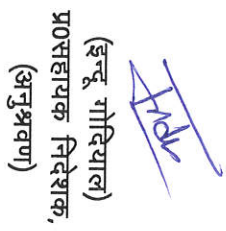 (इन्दू गोदियाल)
प्र0सहायक निदेशक,
(अनुश्रवण)